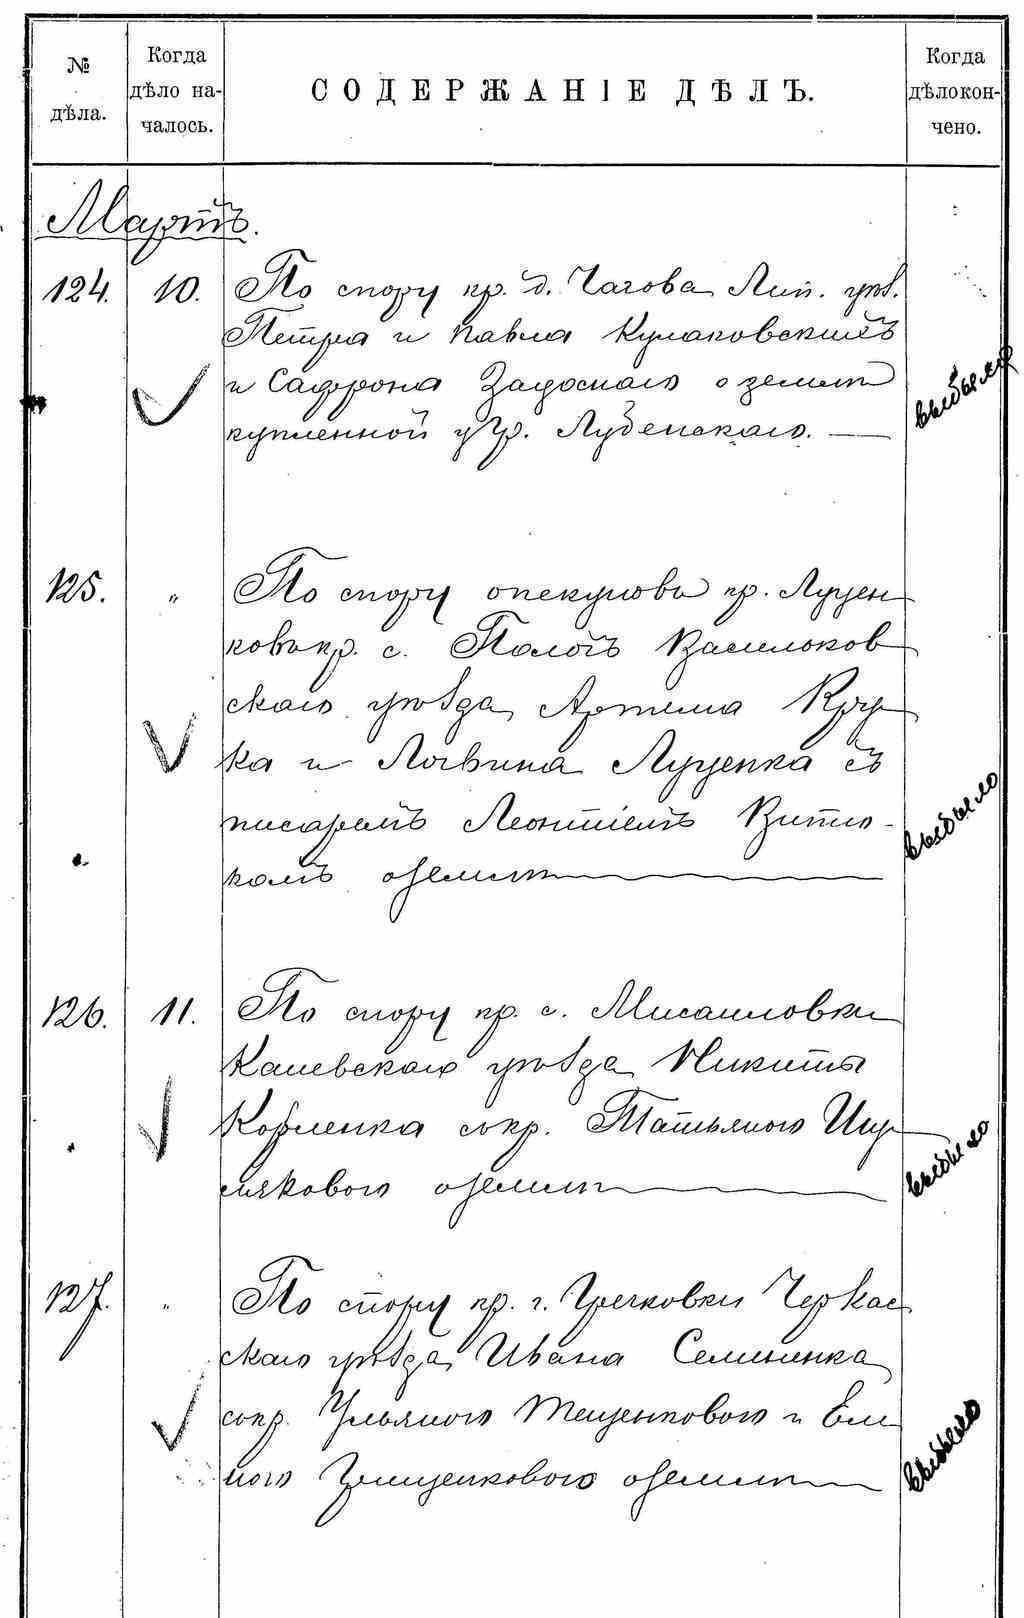 № дѣла.
Когда дѣло на-
чалось.
СОДЕРЖАНІЕ ДѢЛЪ.
Когда дѣло кон-
чено.
Мартъ.
124. 10. По спору кр. д. Чагова Лип. уѣз.
Петра и Павла Кулаковскихъ
и Сафрона Задоснаго о земли
купленной у Гр. Лубенскаго. —
выбыло
125. „ По спору опекуновъ кр. Луцен
ковъ кр. с. Пологъ Васильков
скаго уѣзда Артема Кру
ка и Логвина Луценка съ
писаремъ Леонтіемъ Витю-
комъ о земли
выбыло
126. 11. По спору кр. с. Мисаиловки
Каневскаго уѣзда Никиты
Кориенка съ кр. Татьяною
ковою о земли
выбыло
127. „ По спору кр. г. Гречковки Черкас
скаго уѣзда Ивана Семененка
съ кр. Ульяною Тещенковою и Еле
ною Грищенковою о земли
выбыло